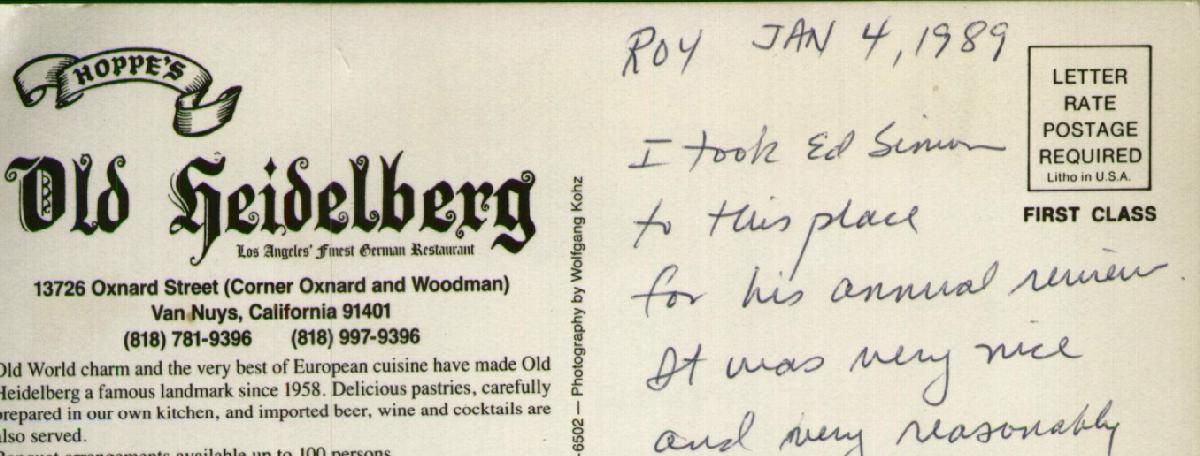 HOPPE'S
Old Heidelberg
Los Angeles' Finest German Restaurant
13726 Oxnard Street (Corner Oxnard and Woodman)
Van Nuys, California 91401
(818) 781-9396 (818) 997-9396
Old World charm and the very best of European cuisine have made Old
Heidelberg a famous landmark since 1958. Delicious pastries, carefully
prepared in our own kitchen, and imported beer, wine and cocktails are
also served.
Banquet arrangements available up to 100 persons.
-6502 — Photography by Wolfgang Kohz
ROY JAN 4, 1989
I took Ed Simon
to this place
for his annual review.
It was very nice
and very reasonably
LETTER
RATE
POSTAGE
REQUIRED
Litho in U.S.A.
FIRST CLASS